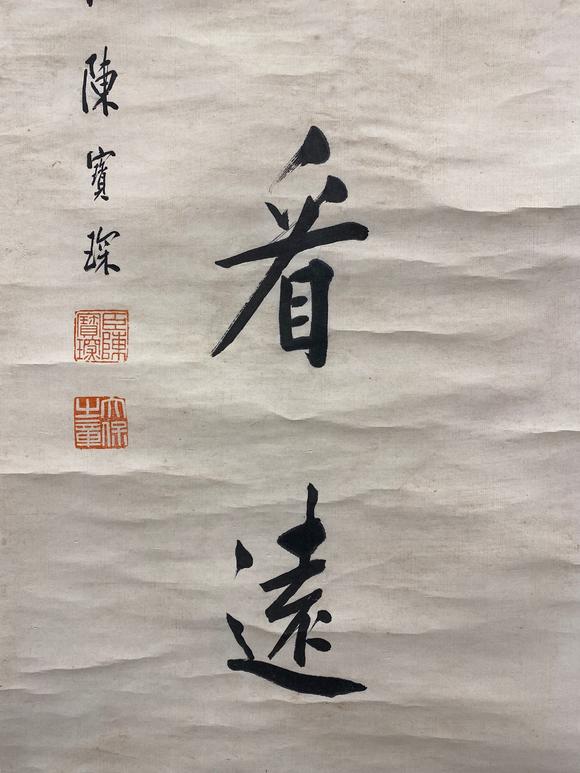 看遠
陳寶琛
臣陳寶琛
太保之章